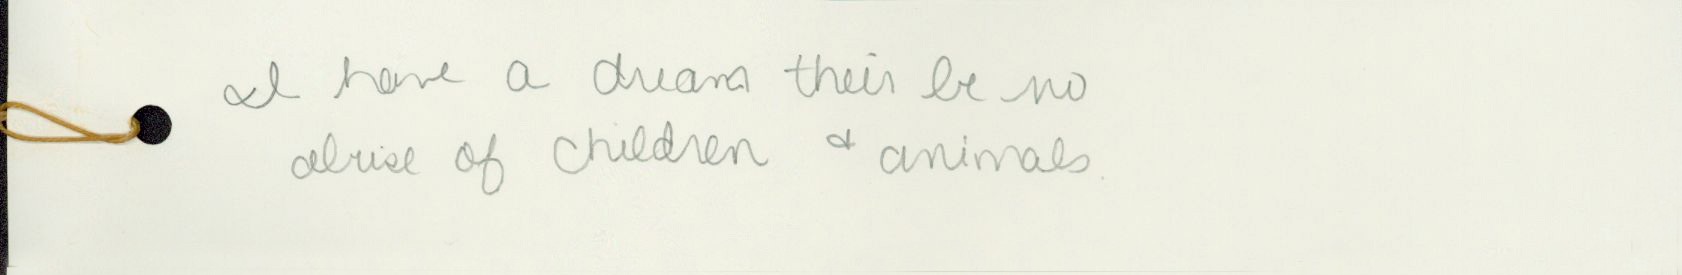 I have a dream their be no
abuse of children & animals.